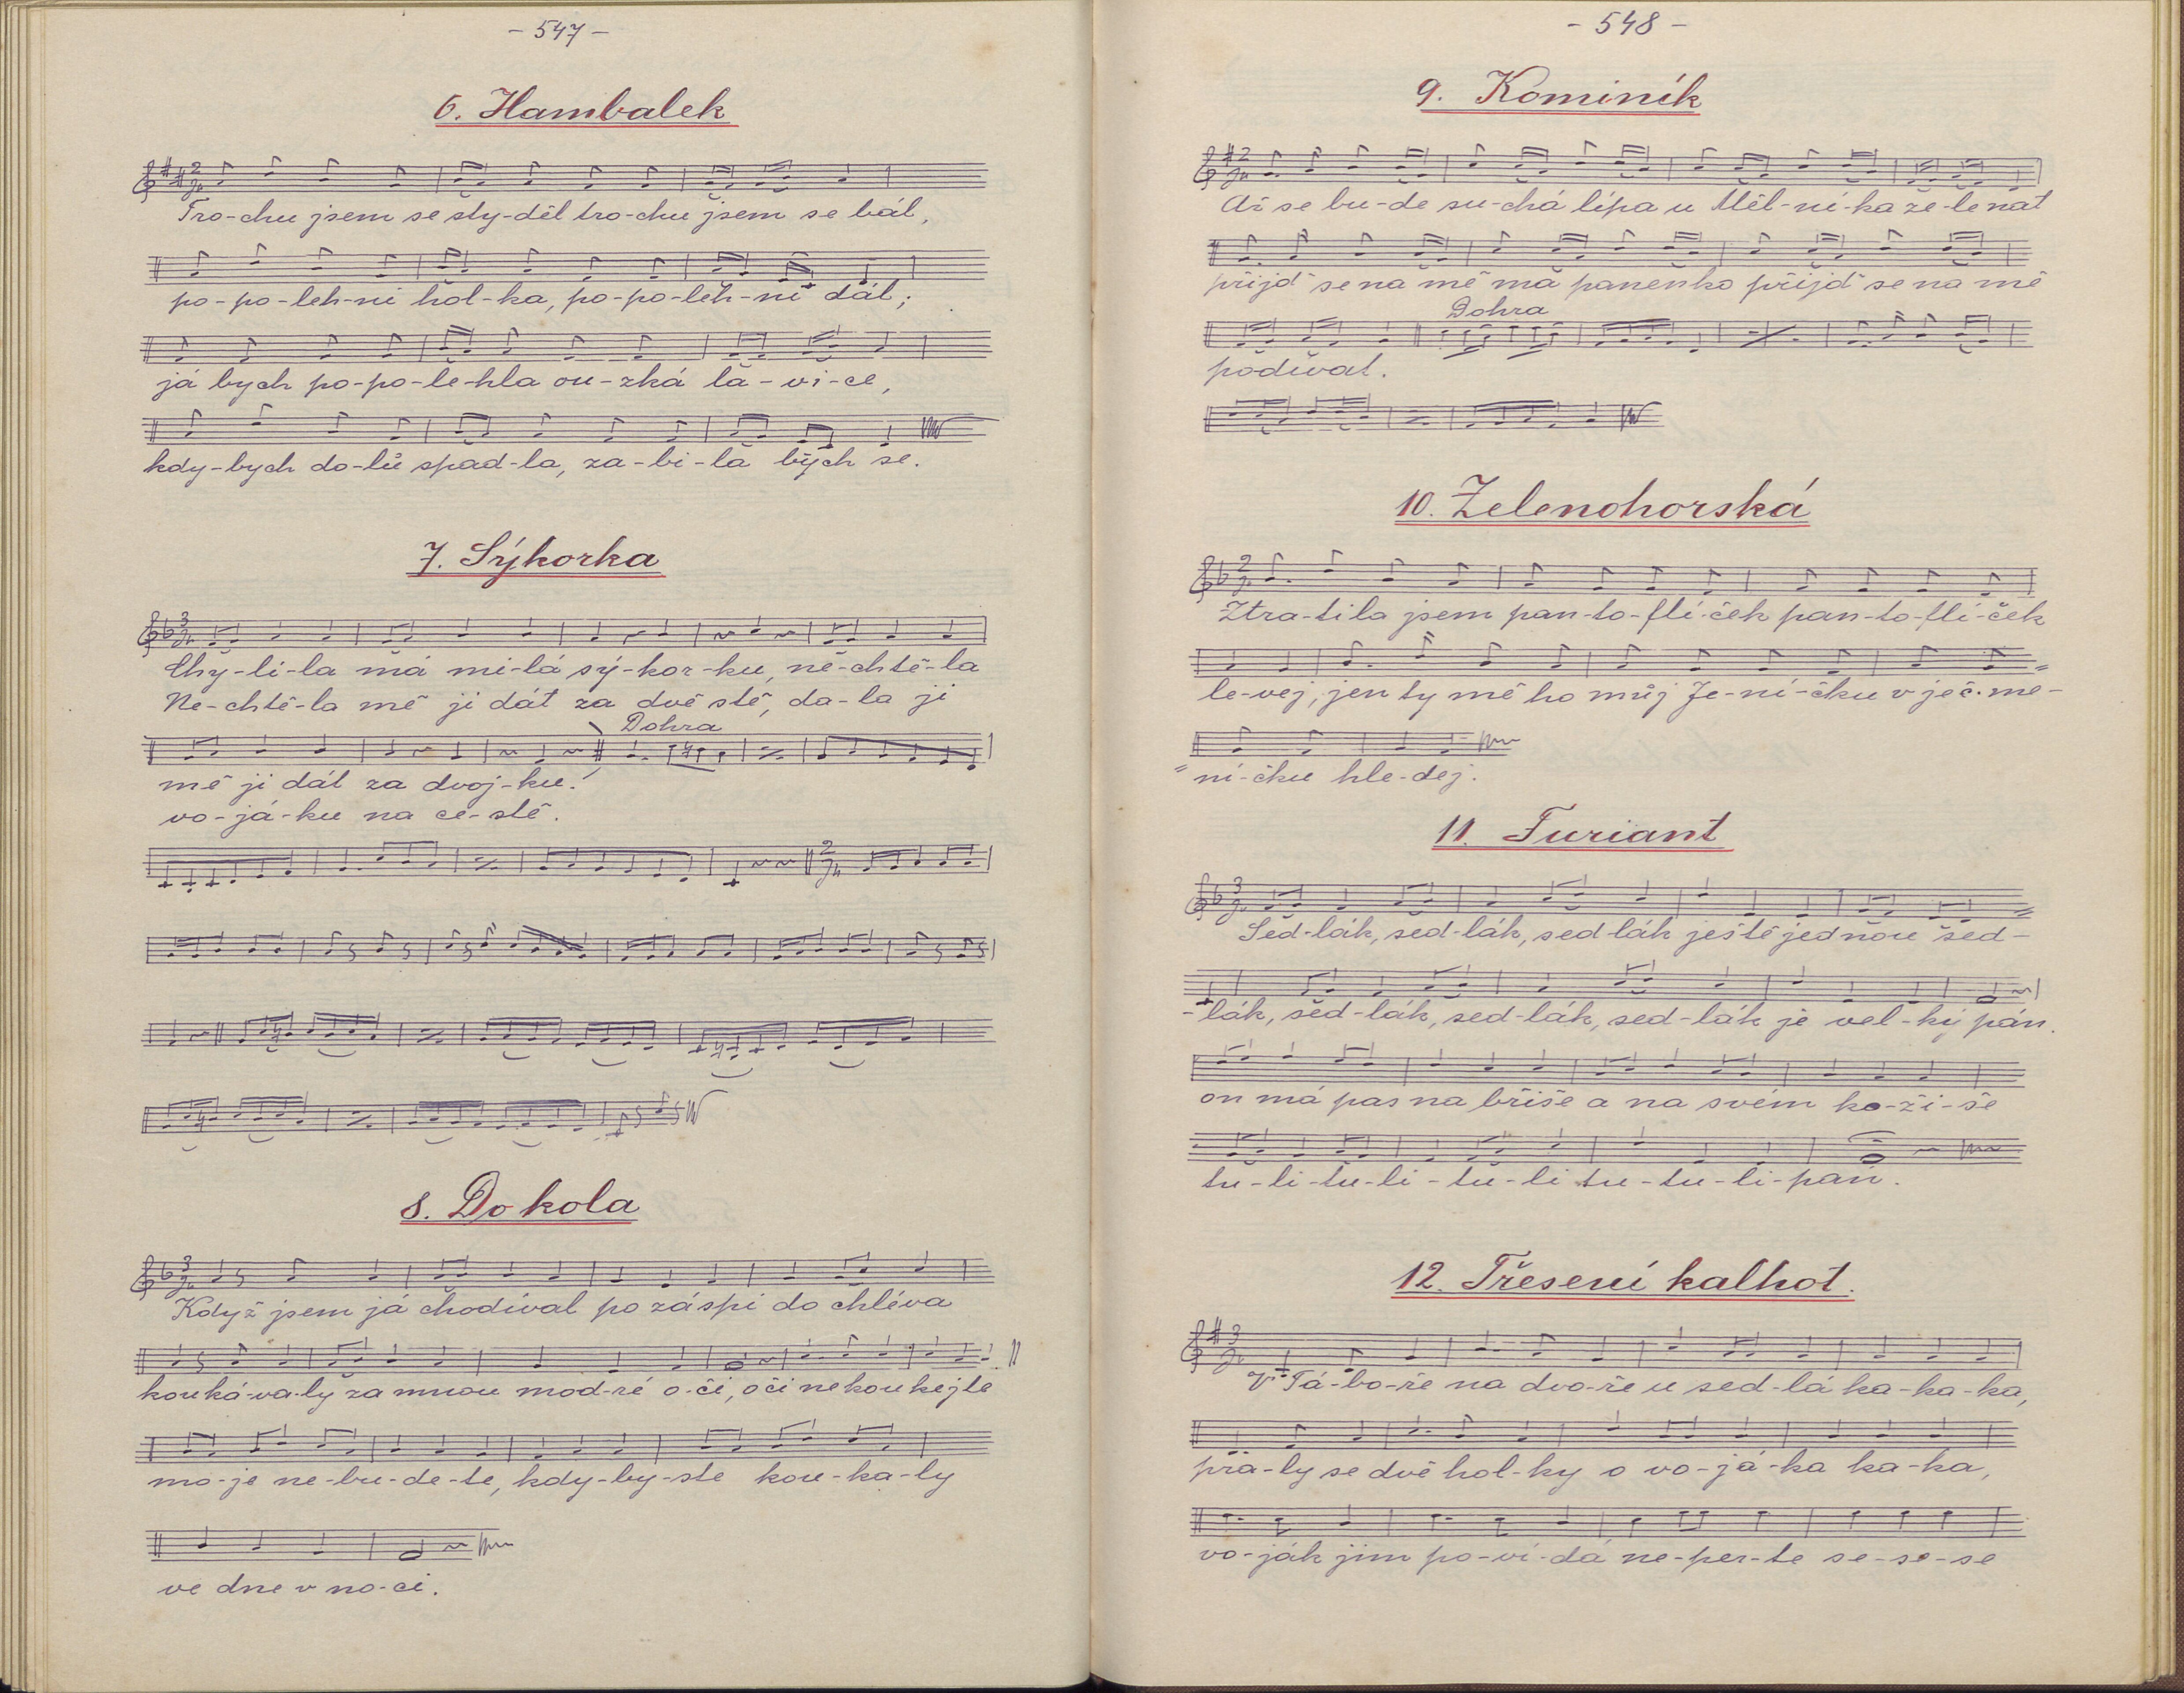 - 547 -
6. Hambalek
Tro-chu jsem se sty-děl tro-chu jsem se bál,
po-po-leh-ni hol-ka, po-po-leh-ni dál;
já bych po-po-le-hla ou-zká la-vi-ce,
kdy-bych do-lů spad-la, za-bi-la bych se.
7. Sýkorka
Chy-li-la má mi-lá sý-kor-ku, ne-chtě-la
Ne-chtě-la mě ji dát za dvě stě, da-la ji
Dohra
mě ji dát za dvoj-ku.
vo-já-ku na ce-stě.
8. Do kola
Když jsem já chodíval po záspi do chléva
kouká-va-ly za mnou mod-ré o-či, oči nekoukejte
mo-je ne-bu-de-te, kdy-by-ste kou-ka-ly
ve dne v no-ci.
- 548 -
9. Kominík
Až se bu-de su-chá lípa u Měl-ní-ka ze-le nat
přijď se na mě má panenko přijď se na mě
Dohra
podívat.
10. Zelenohorská
Ztra-tila jsem pan-to-flí-ček pan-to-flí-ček
le-vej, jen ty mě ho můj Je-ní-čku v ječ-me-
ní-čku hle-dej.
11. Furiant
Sed-lák, sed-lák, sed lák ještě jednou sed-
-lák, sed-lák, sed-lák, sed-lák je vel-ký pán.
on má pas na břiše a na svém ko-ži-še
tu-li-tu-li-tu-li tu-tu-li-pán.
12. Třesení kalhot.
V Tá-bo-ře na dvo-ře u sed-lá ka-ka-ka,
pra-ly se dvě hol-ky o vo-já-ka ka-ka,
vo-ják jim po-ví-dá ne-per-te se-se-se